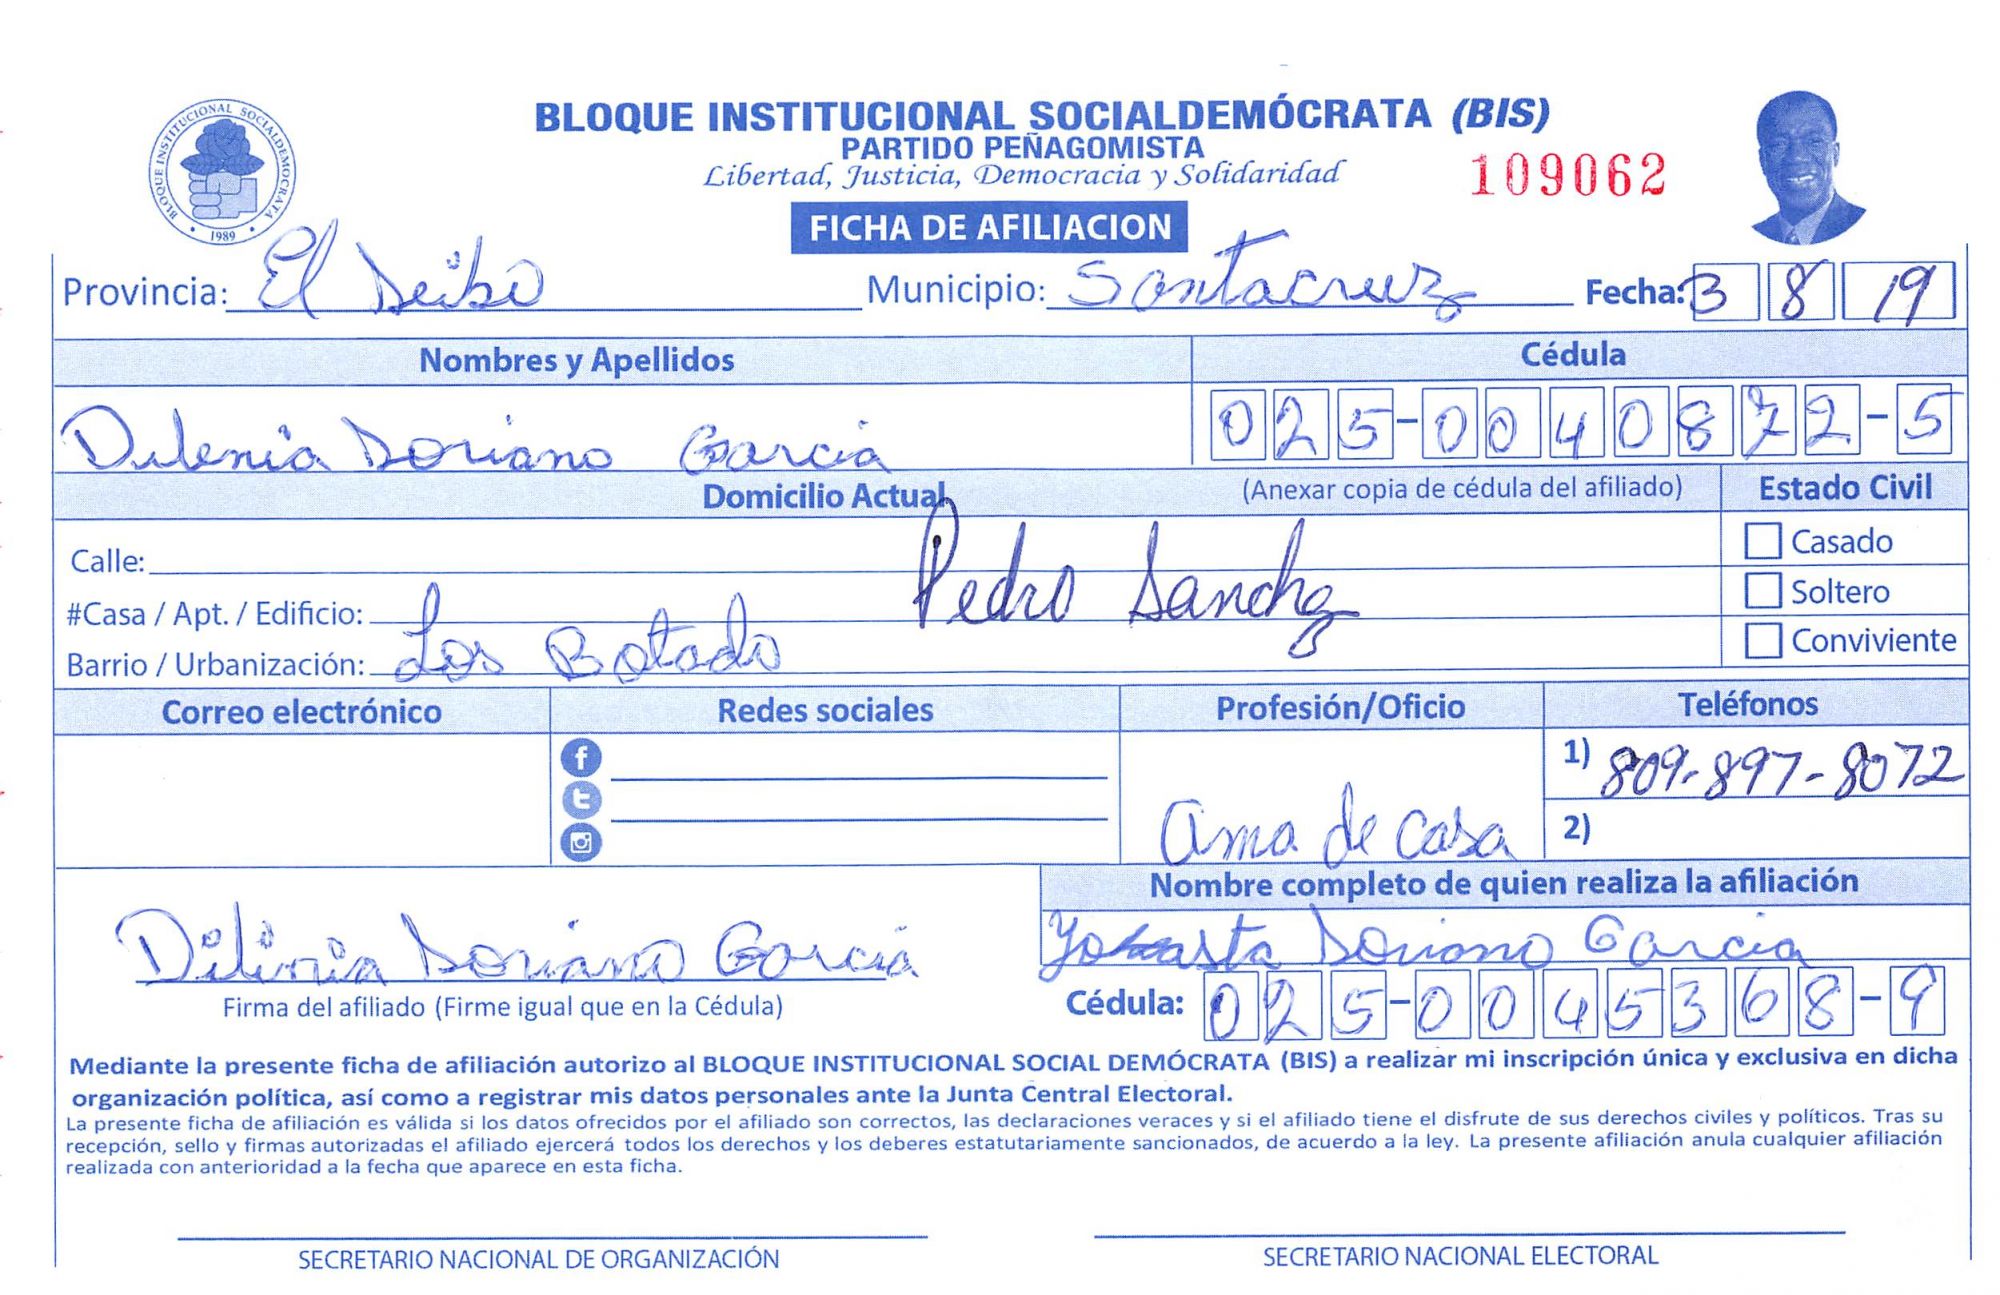 BLOQUE INSTITUCIONAL SOCIALDEMOCRATA
1989
BLOQUE INSTITUCIONAL SOCIALDEMÓCRATA (BIS)
PARTIDO PEÑAGOMISTA
Libertad, Justicia, Democracia y Solidaridad
109062
FICHA DE AFILIACION
Provincia: El Seibo Municipio: Santacruz Fecha: 3 8 19
Nombres y Apellidos Cédula
Dilenia Soriano Garcia 025-0040872-5
Domicilio Actual (Anexar copia de cédula del afiliado) Estado Civil
Calle: Casado
#Casa / Apt. / Edificio: Pedro Sanchz Soltero
Barrio / Urbanización: Los Botado Conviviente
Correo electrónico Redes sociales Profesión/Oficio Teléfonos
1) 809-897-8072
Ama de casa 2)
Nombre completo de quien realiza la afiliación
Dilinia Soriano Garcia Yokasta Soriano Garcia
Firma del afiliado (Firme igual que en la Cédula) Cédula: 025-0045368-9
Mediante la presente ficha de afiliación autorizo al BLOQUE INSTITUCIONAL SOCIAL DEMÓCRATA (BIS) a realizar mi inscripción única y exclusiva en dicha
organización política, así como a registrar mis datos personales ante la Junta Central Electoral.
La presente ficha de afiliación es válida si los datos ofrecidos por el afiliado son correctos, las declaraciones veraces y si el afiliado tiene el disfrute de sus derechos civiles y políticos. Tras su
recepción, sello y firmas autorizadas el afiliado ejercerá todos los derechos y los deberes estatutariamente sancionados, de acuerdo a la ley. La presente afiliación anula cualquier afiliación
realizada con anterioridad a la fecha que aparece en esta ficha.
SECRETARIO NACIONAL DE ORGANIZACIÓN SECRETARIO NACIONAL ELECTORAL